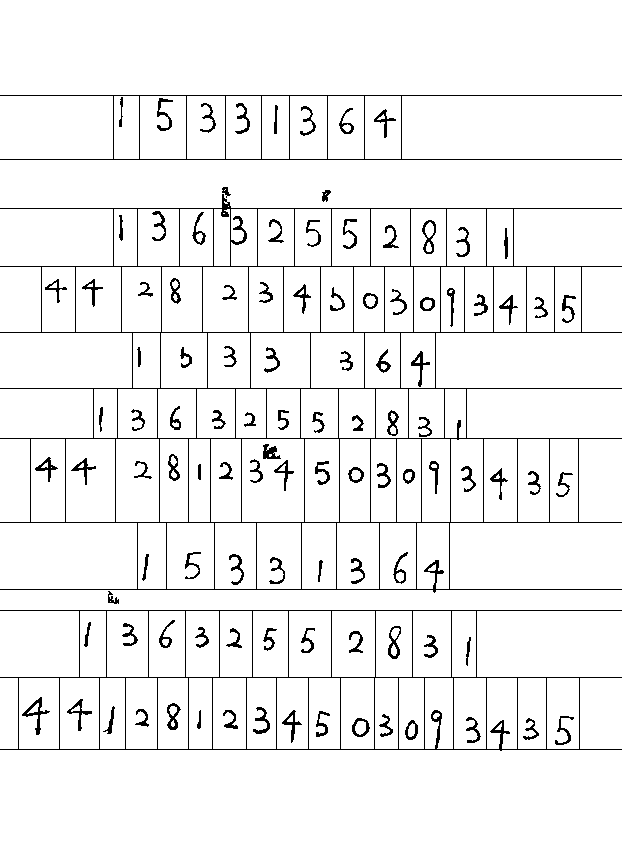 15331364
13632552831
44 28 234503093435
1533 364
13632552831
44 281234503093435
15331364
13632552831
441281234503093435